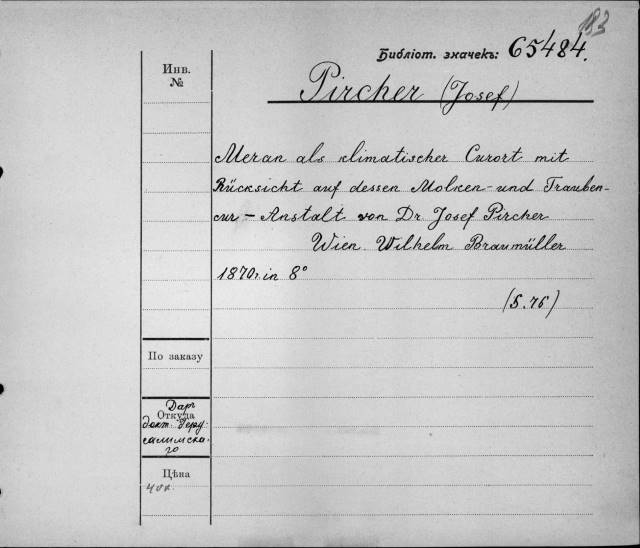 183
Библіот. значекъ: 65484.
Инв.
№
Pircher (Josef)
Meran als klimatischer Curort mit
Rücksicht auf dessen Molken- und Trauben-
cur - Anstalt von Dr. Josef Pircher
Wien. Wilhelm Braumüller
1870. in 8°
(S. 76)
По заказу
Откуда
Даръ
докт. Іеру-
салимска-
го
Цѣна